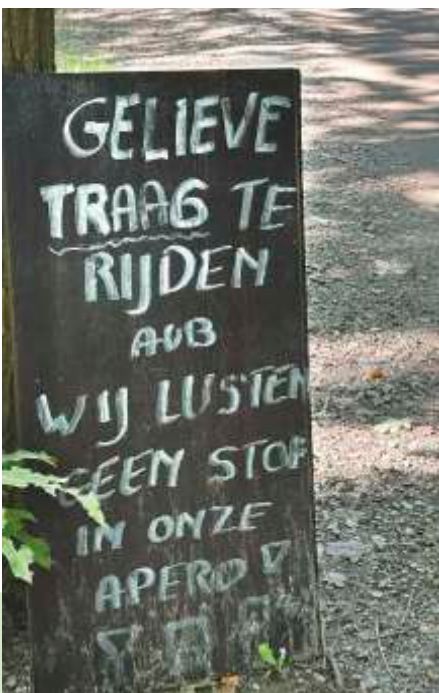 GELIEVE
TRAAG TE
RIJDEN
AUB
WIJ LUSTEN
GEEN STOF
IN ONZE
APERO